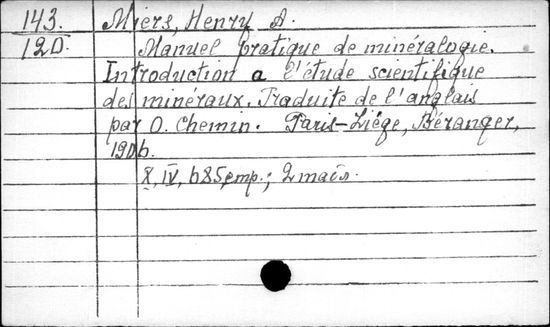 143. Miers, Henry A.
12D. Manuel pratique de minéralogie.
Introduction a l'étude scientifique
des minéraux. Traduite de l'anglais
par O. Chemin. Paris-Liége, Béranger,
1906.
X, IV,